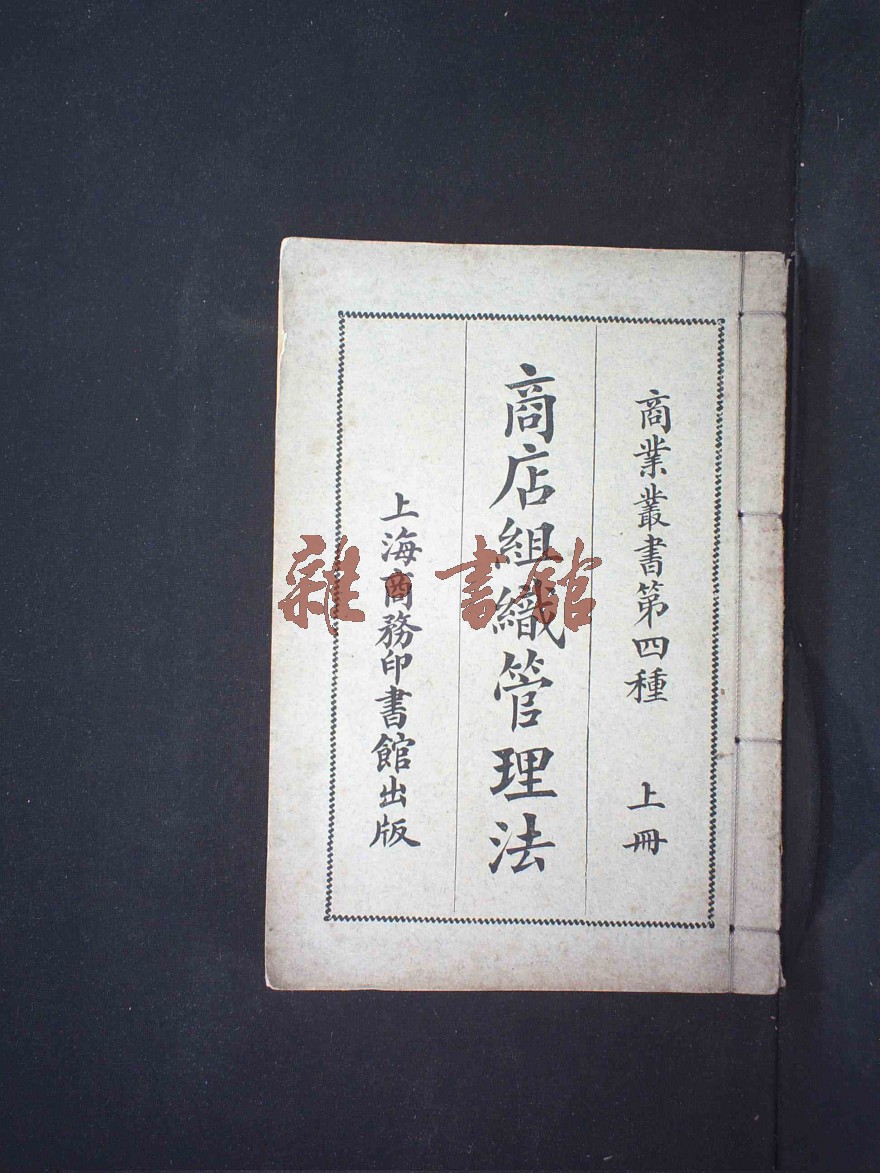 商業叢書第四種 上冊
商店組織管理法
上海商務印書館出版
雜·書館